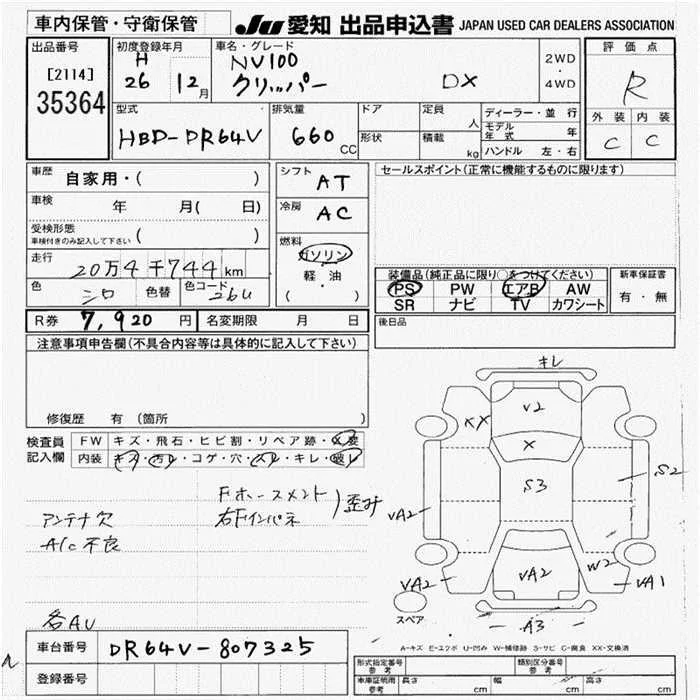 車内保管・守衛保管
JU 愛知 出品申込書 JAPAN USED CAR DEALERS ASSOCIATION
出品番号
[2114]
35364
初度登録年月
H
26 12月
車名・グレード
NV100
クリッパー DX
2WD
・
4WD
評価点
R
外装 内装
C C
型式
HBD-DR64V
排気量
660 CC
ドア
形状
定員 人
積載 kg
ディーラー・並行
モデル年式 年
ハンドル 左・右
車歴 自家用・( )
車検 年 月( 日)
受検形態
車検付きのみ記入して下さい ( )
走行 20万4千744km
色 シロ 色替 色コード 26U
シフト AT
冷房 AC
燃料
ガソリン
・
軽・油
( )
セールスポイント(正常に機能するものに限ります)
装備品(純正品に限り○をつけてください)
PS PW エアB AW
SR ナビ TV カワシート
新車保証書
有・無
R券 7,920 円 名変期限 月 日
後日品
注意事項申告欄(不具合内容等は具体的に記入して下さい)
修復歴 有 (箇所 )
検査員
記入欄
FW キズ・飛石・ヒビ割・リペア跡・×要
内装 キズ・汚レ・コゲ・穴・スレ・キレ・破レ
Fホースメント
右Fインパネ
)歪み
アンテナ欠
A/c不良
各AU
キレ
V2
XX
X
S3
S2
VA2
W2
VA2
VA2
VA1
A3
スペア
A-キズ E-エクボ U-凹み W-補修跡 S-サビ C-腐食 XX-交換済
車台番号 DR64V-807325
登録番号
形式指定番号
参考
類別区分番号
参考
車庫証明用
参考
長さ cm
幅 cm
高さ cm